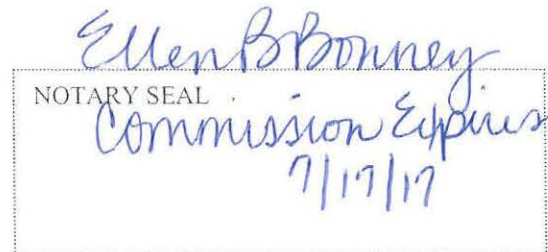 Ellen B Bonney
NOTARY SEAL
Commission Expires
7/17/17